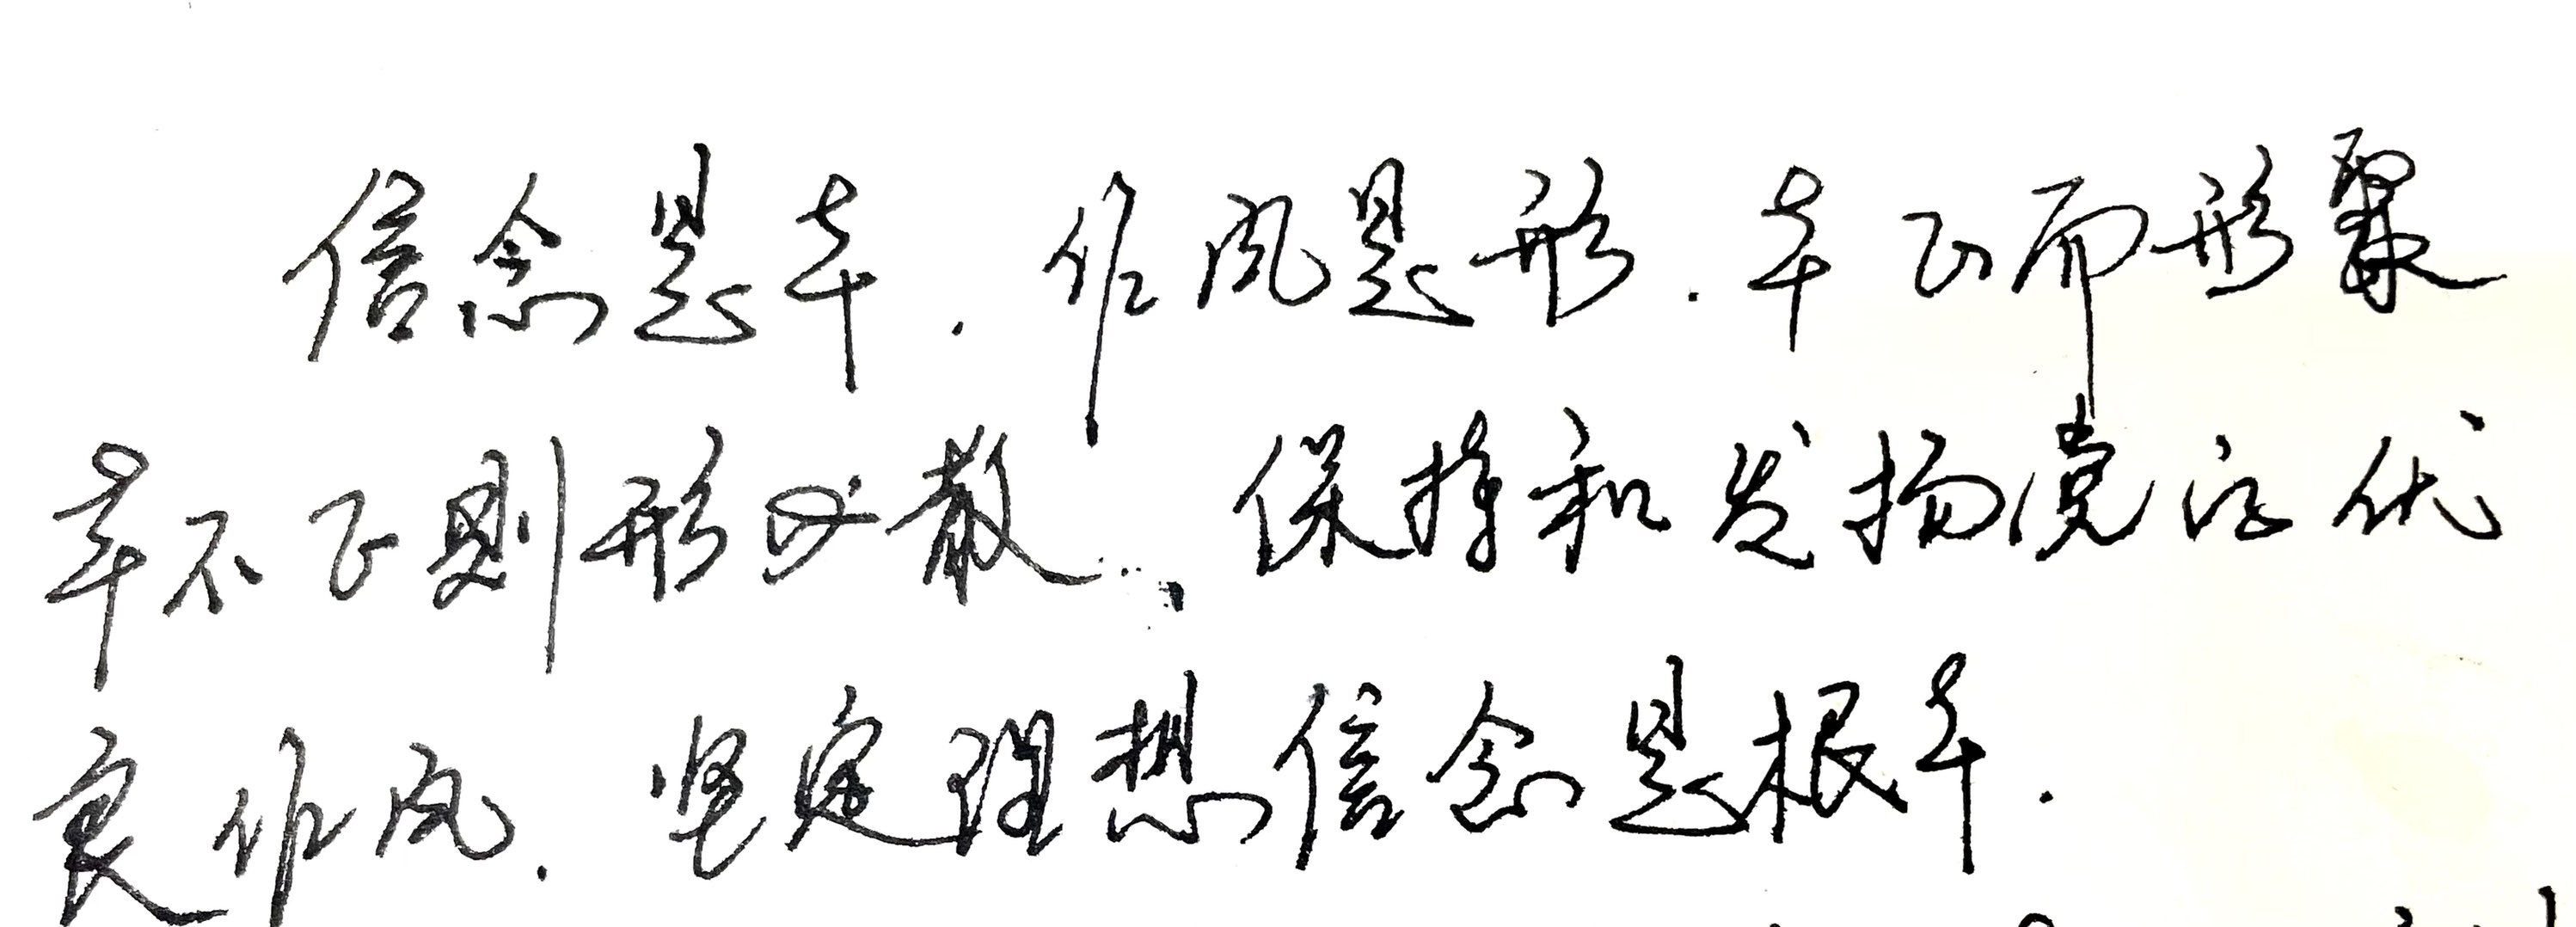 信念是本,作风是形,本正而形聚
本不正则形必散。保持和发扬党的优
良作风,坚定理想信念是根本。